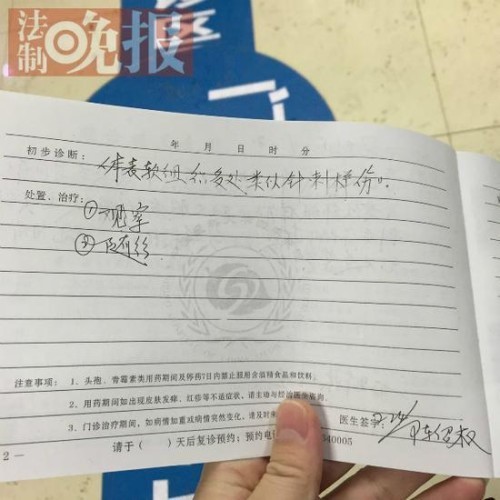 法制晚报
年 月 日 时 分
初步诊断：体表软组织多处类似针刺样伤。
处置、治疗：
①观察
②随诊
注意事项： 1、头孢、青霉素类用药期间及停药7日内禁止服用含酒精食品和饮料。
2、用药期间如出现皮肤发痒、红疹等不适症状，请主动与经治医生
3、门诊治疗期间，如病情加重或病情突然变化，请及时来
医生签字：
请于（ ）天后复诊预约；预约电 540005
2 —